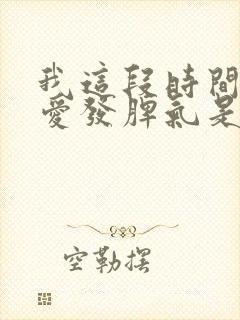 我這段時間
愛發脾氣是
空勒摆